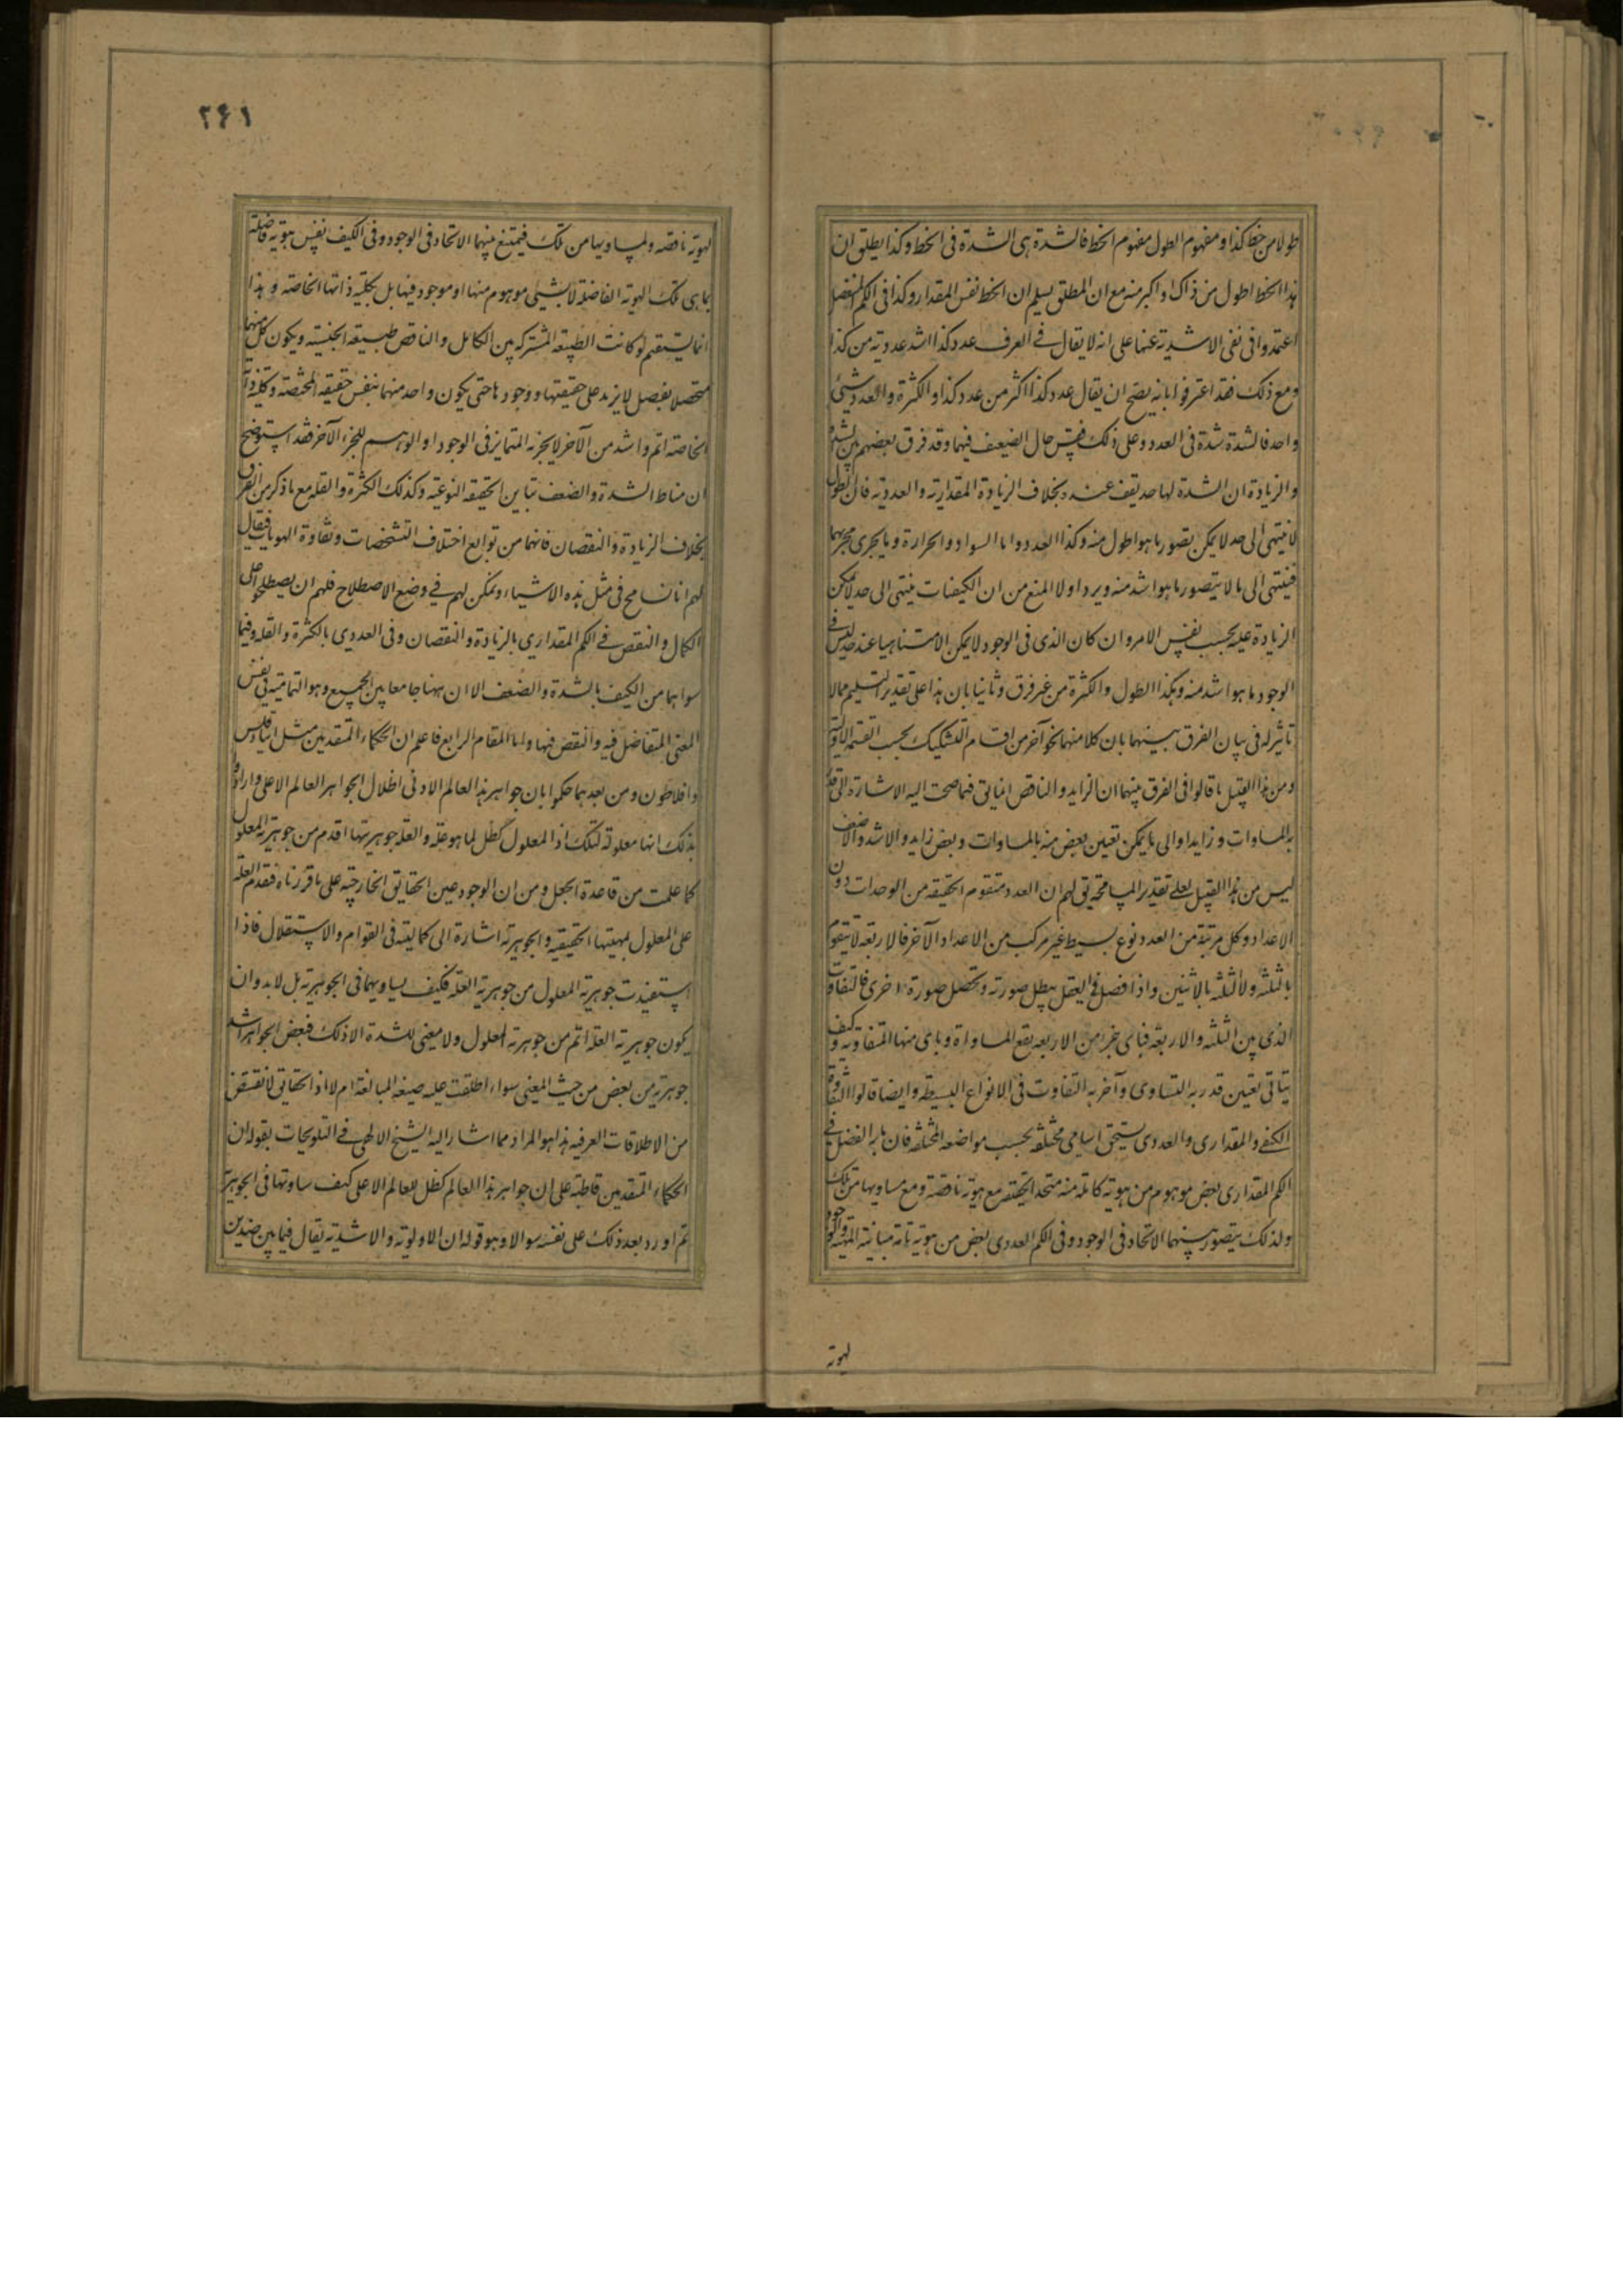 طولا من خط كذا و مفهوم الطول مفهوم الخط فالشدة هى الشدة فى الخط و كذا يطلق ان
هذا الخط اطول من ذاك او اكبر منه مع ان المطلق يسلم ان الخط نفس المقدار و كذا فى الكم المنفصل
اعتمدوا فى نفى الاشدية عنها على انه لا يقال فى العرف عدد كذا اشد عددية من كذا
و مع ذلك فقد اعترفوا بانه يصح ان يقال عدد كذا اكثر من عدد كذا و الكثرة و العدد شىء
واحد فالشدة شدة فى العدد و على ذلك فقس حال الضعف فيهما و قد فرق بعضهم بين الشدة
و الزيادة ان الشدة لها حد يقف عنده بخلاف الزيادة المقدارية و العددية فان الطول
لا ينتهى الى حد لا يمكن تصور ما هو اطول منه و كذا العدد و اما السواد و الحرارة و ما يجرى مجريهما
فينتهى الى ما لا يتصور ما هو اشد منه و يرد اولا المنع من ان الكيفيات ينتهى الى حد لا يمكن
الزيادة عليه بحسب نفس الامر و ان كان الذى فى الوجود لا يمكن الا متناهيا عند حد ليس فى
الوجود ما هو اشد منه و هكذا الطول و الكثرة من غير فرق و ثانيا بان هذا على تقدير التسليم مما لا
تاثير له فى بيان الفرق بينهما بان كلا منهما نحو آخر من اقسام التشكيك بحسب القسمة الاولية
و من هذا القبيل ما قالوا فى الفرق بينهما ان الزايد و الناقص انما يق فيما صحت اليه الاشارة الى قدر
به المساوات و زايد او الى ما يمكن تعيين بعض منه بالمساوات و بعض زايد و الاشد و الاضعف
ليس من هذا القبيل فعلى تقدير المسامحة يق لهم ان العدد متقوم الحقيقه من الوحدات دون
الاعداد و كل مرتبة من العدد نوع بسيط غير مركب من الاعداد الآخر فالاربعه لا يتقوم
بالثلثه و لا الثلثه بالاثنين و اذا فصل فى العقل يبطل صورته و تحصل صورة اخرى فالتفاوت
الذى بين الثلثه و الاربعه فباى جزء من الاربعه يقع المساواة و باى منها المتفاوتيه و كيف
يتاتى تعين قدر به التساوى و آخر به التفاوت فى الانواع البسيطه و ايضا قالوا التفاوت
الكيفى و المقدارى و العددى يستحق اسامى مختلفه بحسب مواضعه المختلفه فان ما به الفضل فى
الكم المقدارى بعض موهوم من هوية كاملة منه متحد الحقيقه مع هوية ناقصة و مع مساويها من تلك
و لذلك يتصور بينهما الاتحاد فى الوجود و فى الكم العددى بعض من هوية تامة مباينة المهية و الوجود
لهوية
٢۶١
لهوية ناقصه و لمساويها من تلك فيمتنع بينهما الاتحاد فى الوجود و فى الكيف نفس هوية فاضلة
بما هى تلك الهوية الفاضلة لا بشىء موهوم منها او موجود فيها بل بكلية ذاتها الخاصة و هذا
انما يستقيم لو كانت الطبيعه المشتركه بين الكامل و الناقص طبيعه الجنسيه و يكون كل منهما
متحصلا بفصل لا يزيد على حقيقتها و وجودها حتى يكون واحد منهما بنفس حقيقه المختصة و كلية ذاته
الخاصة اتم و اشد من الآخر لا بجزئه المتمايز فى الوجود او الوهم للجزء الآخر فقد استوضح
ان مناط الشدة و الضعف تباين الحقيقه النوعيه و كذلك الكثرة و القله مع ما ذكر من الفرق
بخلاف الزيادة و النقصان فانهما من توابع اختلاف التشخصات و تفاوة الهويات فيقال
لهم انا نسامح فى مثل هذه الاشياء و نمكن لهم فى وضع الاصطلاح فلهم ان يصطلحوا على
الكمال و النقص فى الكم المقدارى بالزيادة و النقصان و فى العددى بالكثرة و القله و فيما
سواهما من الكيف بالشدة و الضعف الا ان ههنا جامعا بين الجميع و هو التمامية فى نفس
المعنى المتفاضل فيه و النقص فيها و اما المقام الرابع فاعلم ان الحكماء المتقدمين مثل انباذقلس
و افلاطون و من بعدهما حكموا بان جواهر هذا العالم الادنى اظلال لجواهر العالم الاعلى و ارادوا
بذلك انها معلولة لتلك اذ المعلول كظل لما هو علة و العلة جوهريتها اقدم من جوهرية المعلول
كما علمت من قاعدة الجعل و من ان الوجود عين الحقايق الخارجيه على ما قررناه فتقدم العلة
على المعلول بمهيتها الحقيقيه و الجوهرية اشارة الى كماليته فى القوام و الاستقلال فاذا
استفيدت جوهرية المعلول من جوهرية العلة فكيف يساويهما فى الجوهرية بل لا بد و ان
يكون جوهرية العلة اتم من جوهرية المعلول و لا معنى للشدة الا ذلك فبعض الجواهر اشد
جوهرية من بعض من حيث المعنى سواء اطلقت عليه صيغة المبالغة ام لا اذ الحقايق لا تقتنص
من الاطلاقات العرفيه هذا هو المراد مما اشار اليه الشيخ الالهى فى التلويحات بقوله ان
الحكماء المتقدمين قاطبة على ان جواهر هذا العالم كظل للعالم الاعلى كيف ساوتها فى الجوهرية
ثم اورد بعد ذلك على نفسه سوالا و هو قوله ان الاولوية و الاشدية يقال فيما بين ضدين